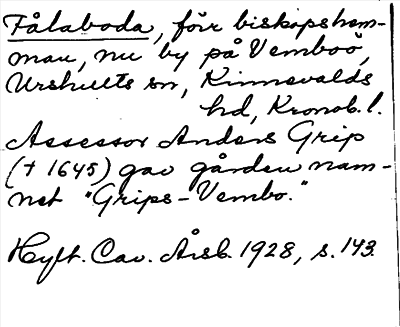 Fålaboda, förr biskopshem-
man, nu by på Vemboö,
Urshults sn, Kinnevalds
hd, Kronob. l.
Assessor Anders Grip
(† 1645) gav gården nam-
net "Grips-Vembo."
Hylt. Cav. Årsb. 1928, s. 143.